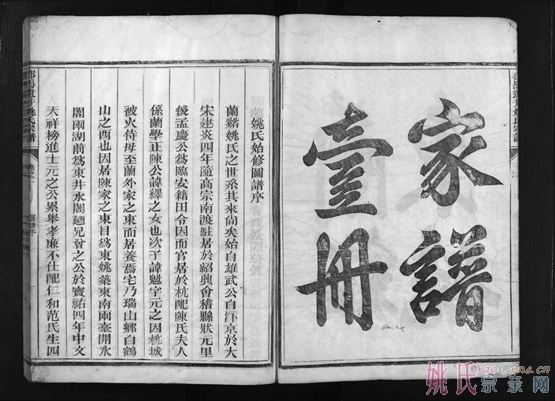 家譜
壹冊
蘭谿姚氏始修圖譜序
蘭谿姚氏之世系其來尚矣始自雄武公自汴京於大
宋建炎四年隨高宗南渡駐居於紹興會稽縣狀元里
後孟慶公為臨安籍田令因而官居於杭配陳氏夫人
係蘭學正陳公諱繹之女也次子諱魁字元之因杭城
被火侍母至蘭外家之東而居焉宅乃瑞山鄉白鶴
山之酉也因居陳家之東目為東姚築東南兩臺開水
閣兩湖前為東井水閣廼兄發之公於寶祐四年中文
天祥榜進士元之公累舉孝廉不仕配仁和范氏生四
姚氏宗亲网
YaoGens.cn